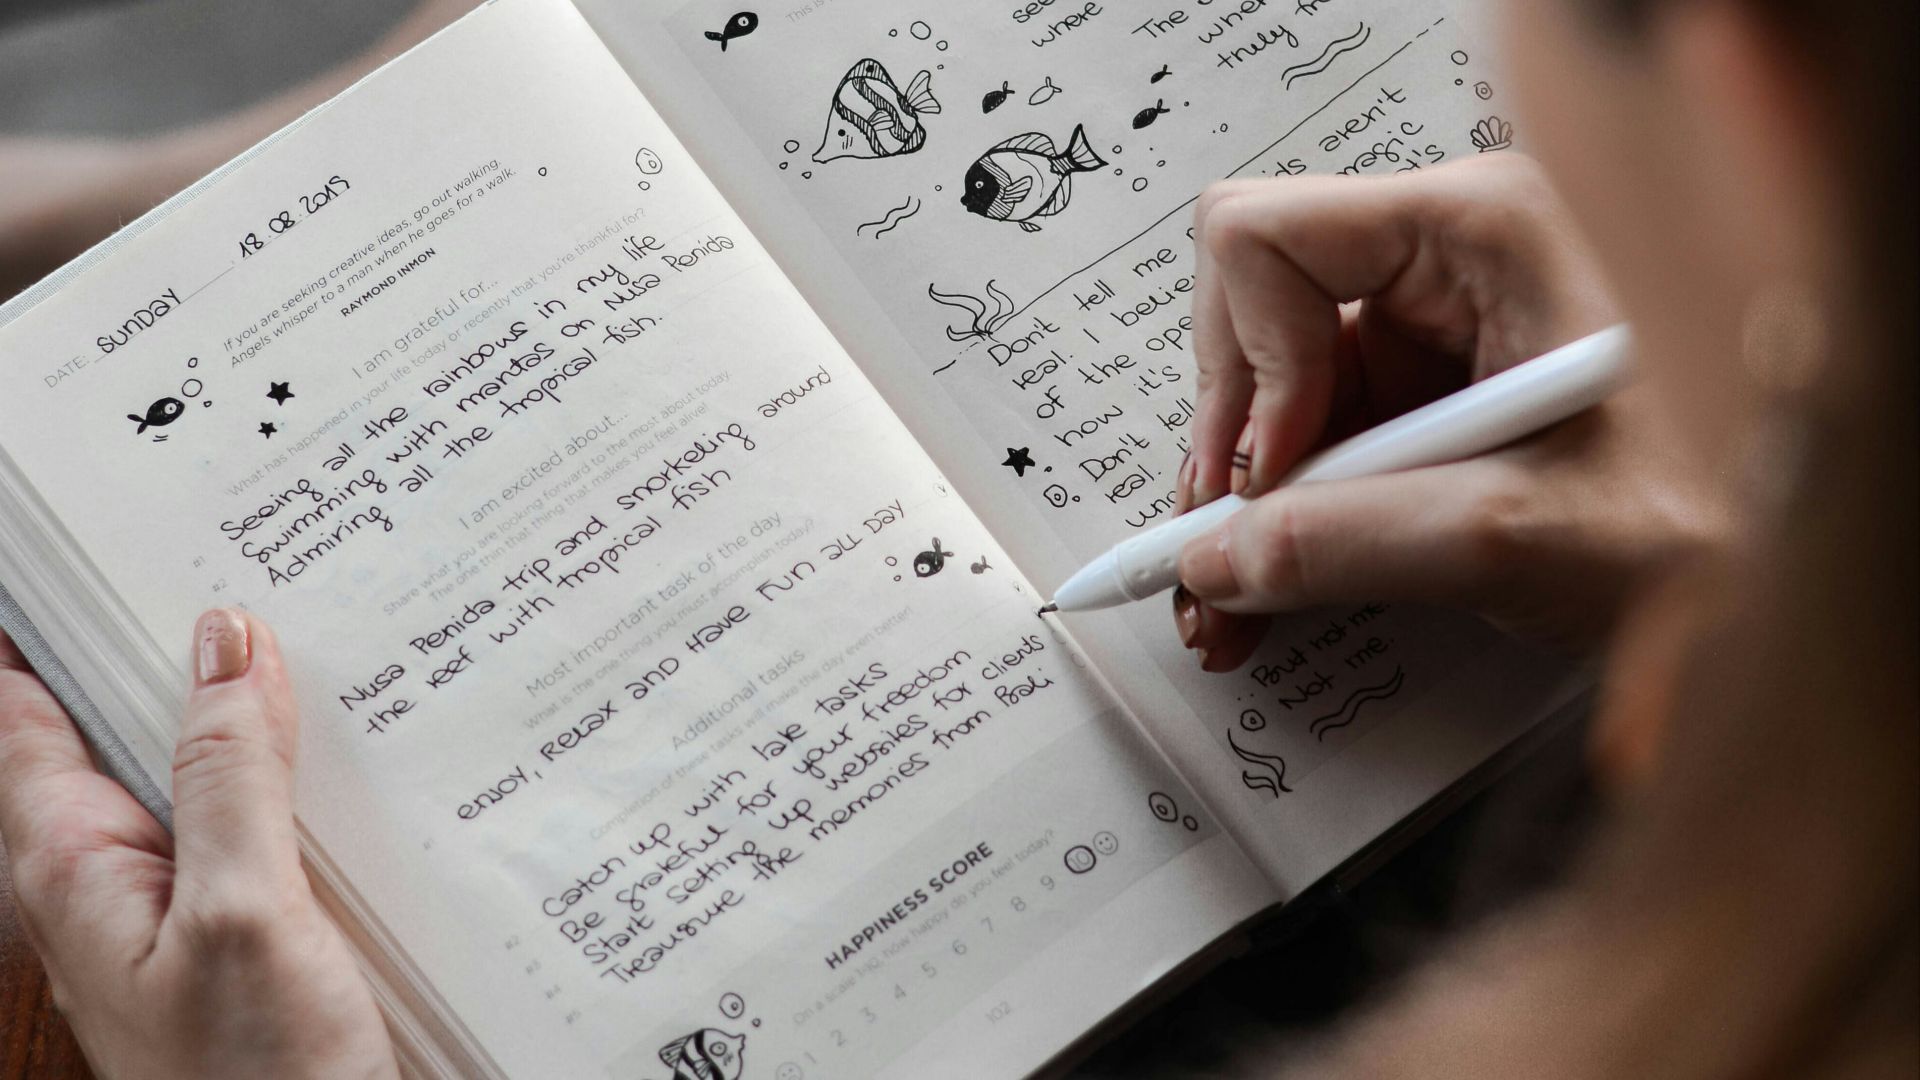 DATE: SUNDAY 18.08.2019
If you are seeking creative ideas, go out walking.
Angels whisper to a man when he goes for a walk.
RAYMOND INMON
I am grateful for...
What has happened in your life today or recently that you're thankful for?
#1 Seeing all the rainbows in my life
#2 Swimming with mantas on Nusa Penida
Admiring all the tropical fish.
I am excited about...
Share what you are looking forward to the most about today.
The one thing that makes you feel alive!
Nusa Penida trip and snorkeling around
the reef with tropical fish
Most important task of the day
What is the one thing you must accomplish today?
#1 ENJOY, RELAX AND HAVE FUN ALL DAY
Additional tasks
Completion of these tasks will make the day even better!
#2 Catch up with late tasks
#3 Be grateful for your freedom
#4 Start setting up websites for clients
#5 Treausure the memories from Bali
HAPPINESS SCORE
On a scale 1-10, how happy do you feel today?
1 2 3 4 5 6 7 8 9 10
102
This is
see
where
The
when
truly
aren't
magic
Don't tell me
real. I
of the
how it's
Don't tell
real.
But not me.
Not me.